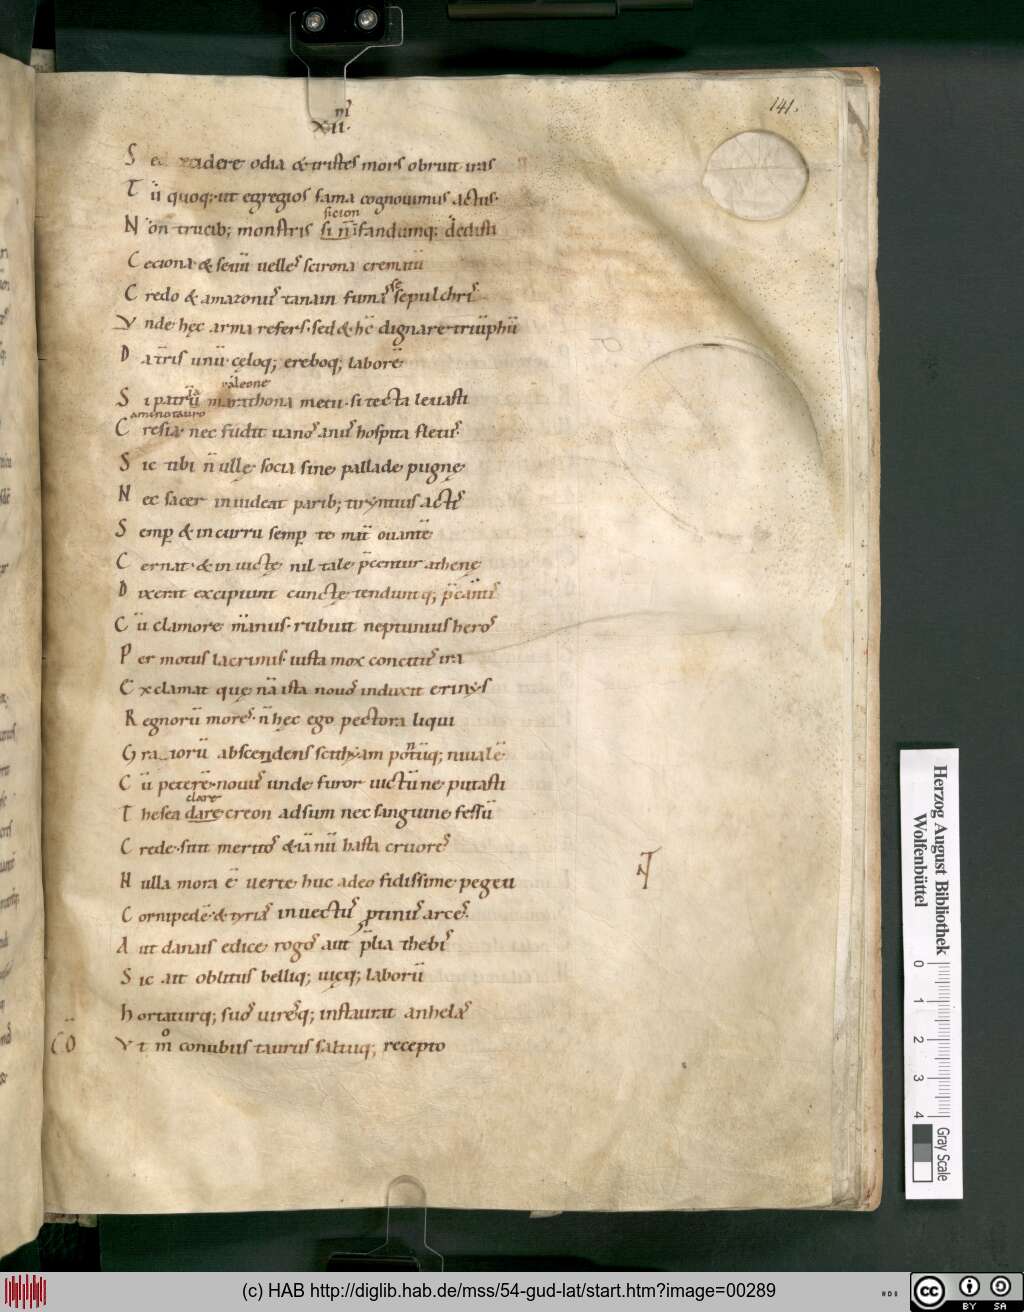 141.
XII.
S ed cadere odia & tristes mors obruit iras
T ū quoq; ut egregios fama cognouimus actus.
sicion
N on trucib; monstris si n̄ īfandumq; dedisti
C eciona & seuū uelles scirona crematū
se
C redo & amazonus tanain fumas sepulchris
V nde hęc arma refers. sed & hc̄ dignare triūphū
D a t̄ris unū cęloq; ereboq; laborē
valeone
S i patriū marathona metu. si tecta leuasti
a minotauro
C resia nec fudit uanos anus hospita fletus.
S ic tibi n̄ ullę socia sine pallade pugnę
N ec sacer inuideat parib; tirẏntius actis
S emp & in curru semp te mat̄ ouantē
C ernat. & in uictę nil tale p̄centur athenę
D ixerat excipiunt cunctę tenduntq; p̄cantis
C ū clamore man̄us. rubuit neptunius heros
P er motus lacrimis. iusta mox concitus ira
E xclamat que nā ista nouos induxit erinẏs
R egnorū mores. n̄ hęc ego pectora liqui
G raiorū abscendens scithẏam pontūq; niualē
C ū peterē. nouus unde furor uictūne putasti
clare
T hesea dare creon adsum nec sanguine fessū
C rede. sitit meritos & iā nū hasta cruores
N ulla mora ē uerte huc adeo fidissime pegeu
C ornipedē & tyrias inuectus ptinus arces.
A ut danais edice rogos aut p̄lia thebis
S ic ait oblitus belliq; uięq; laborū
H ortaturq; suos uiresq; instaurat anhelas
CŌ V t m̊ conubiis taurus saltuq; recepto
Herzog August Bibliothek
Wolfenbüttel
0 1 2 3 4 Gray Scale
(c) HAB http://diglib.hab.de/mss/54-gud-lat/start.htm?image=00289
HAB
cc BY SA